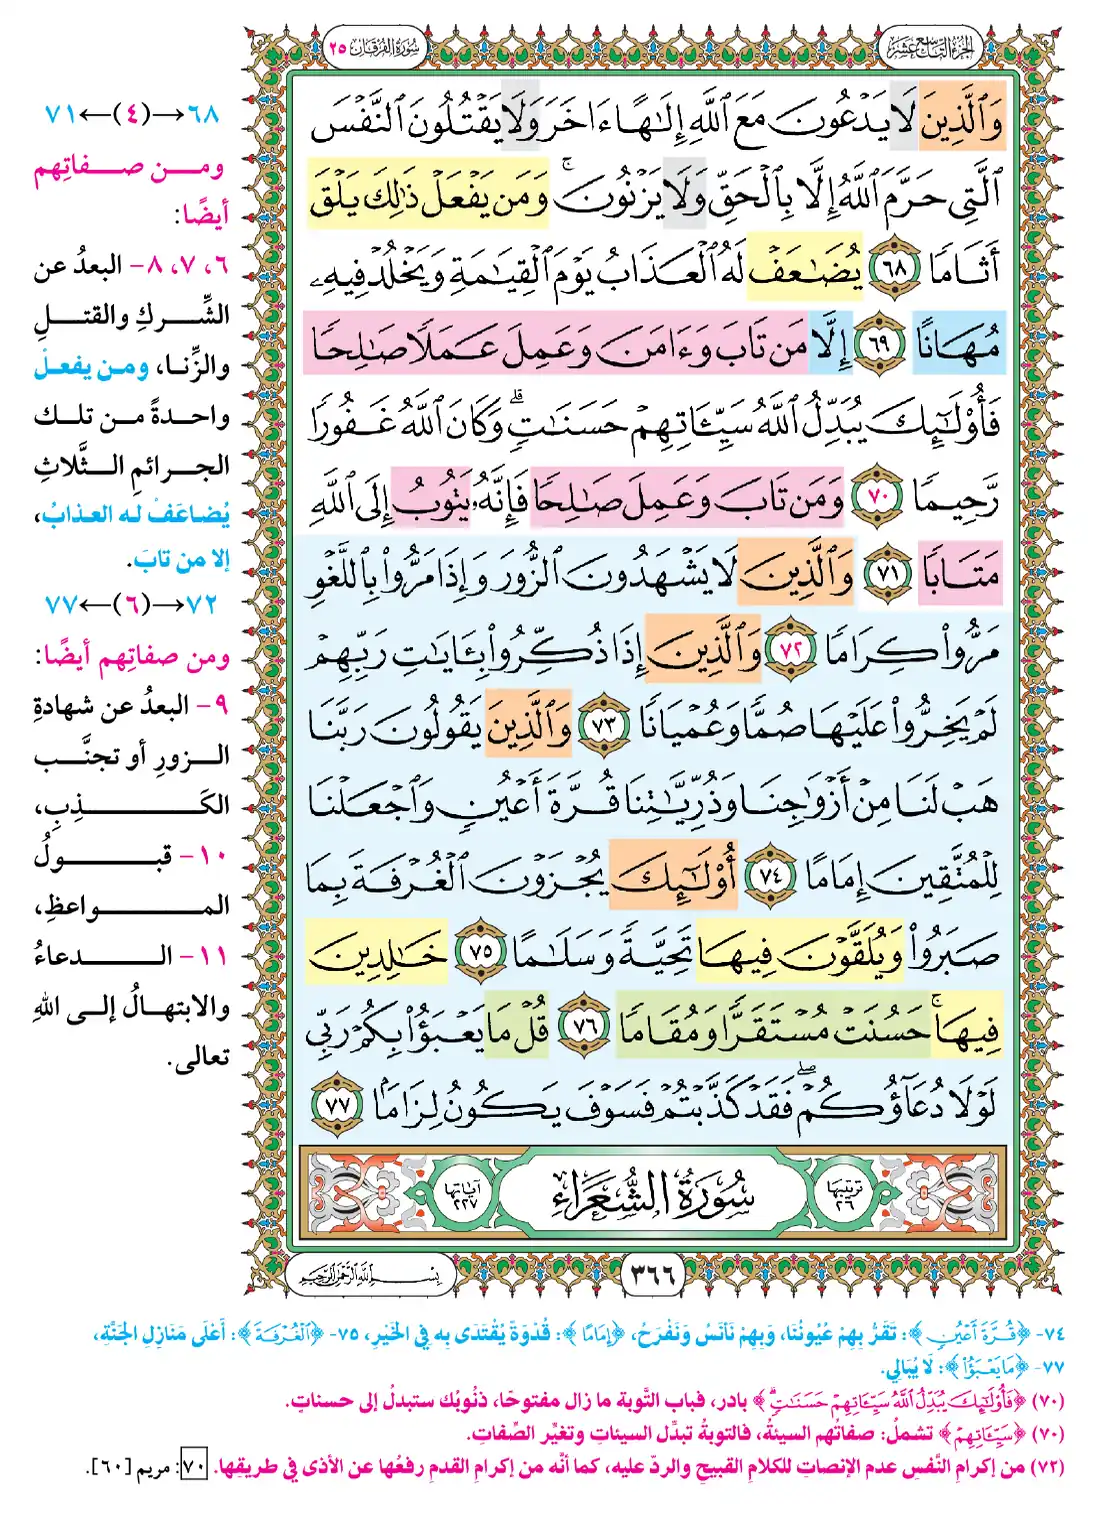 الجزء التاسع عشر
سورة الفرقان ٢٥
وَٱلَّذِينَ لَا يَدْعُونَ مَعَ ٱللَّهِ إِلَٰهًا ءَاخَرَ وَلَا يَقْتُلُونَ ٱلنَّفْسَ
ٱلَّتِى حَرَّمَ ٱللَّهُ إِلَّا بِٱلْحَقِّ وَلَا يَزْنُونَ ۚ وَمَن يَفْعَلْ ذَٰلِكَ يَلْقَ
أَثَامًا ٦٨ يُضَٰعَفْ لَهُ ٱلْعَذَابُ يَوْمَ ٱلْقِيَٰمَةِ وَيَخْلُدْ فِيهِۦ
مُهَانًا ٦٩ إِلَّا مَن تَابَ وَءَامَنَ وَعَمِلَ عَمَلًا صَٰلِحًا
فَأُو۟لَٰٓئِكَ يُبَدِّلُ ٱللَّهُ سَيِّـَٔاتِهِمْ حَسَنَٰتٍ ۗ وَكَانَ ٱللَّهُ غَفُورًا
رَّحِيمًا ٧٠ وَمَن تَابَ وَعَمِلَ صَٰلِحًا فَإِنَّهُۥ يَتُوبُ إِلَى ٱللَّهِ
مَتَابًا ٧١ وَٱلَّذِينَ لَا يَشْهَدُونَ ٱلزُّورَ وَإِذَا مَرُّوا۟ بِٱللَّغْوِ
مَرُّوا۟ كِرَامًا ٧٢ وَٱلَّذِينَ إِذَا ذُكِّرُوا۟ بِـَٔايَٰتِ رَبِّهِمْ
لَمْ يَخِرُّوا۟ عَلَيْهَا صُمًّا وَعُمْيَانًا ٧٣ وَٱلَّذِينَ يَقُولُونَ رَبَّنَا
هَبْ لَنَا مِنْ أَزْوَٰجِنَا وَذُرِّيَّٰتِنَا قُرَّةَ أَعْيُنٍ وَٱجْعَلْنَا
لِلْمُتَّقِينَ إِمَامًا ٧٤ أُو۟لَٰٓئِكَ يُجْزَوْنَ ٱلْغُرْفَةَ بِمَا
صَبَرُوا۟ وَيُلَقَّوْنَ فِيهَا تَحِيَّةً وَسَلَٰمًا ٧٥ خَٰلِدِينَ
فِيهَا ۚ حَسُنَتْ مُسْتَقَرًّا وَمُقَامًا ٧٦ قُلْ مَا يَعْبَؤُا۟ بِكُمْ رَبِّى
لَوْلَا دُعَآؤُكُمْ ۖ فَقَدْ كَذَّبْتُمْ فَسَوْفَ يَكُونُ لِزَامًۢا ٧٧
ترتيبها ٢٦
سُورَةُ الشُّعَرَاءِ
آياتها ٢٢٧
٣٦٦
بسم الله الرحمن الرحيم
٦٨→(٤)←٧١
ومن صفاتِهم
أيضًا:
٦، ٧، ٨- البعدُ عن
الشِّركِ والقتلِ
والزِّنا، ومن يفعلْ
واحدةً من تلك
الجرائمِ الثَّلاثِ
يُضاعَفْ له العذابُ،
إلا من تابَ.
٧٢→(٦)←٧٧
ومن صفاتِهم أيضًا:
٩- البعدُ عن شهادةِ
الزورِ أو تجنَّب
الكَذِبِ،
١٠- قبولُ
المواعظِ،
١١- الدعاءُ
والابتهالُ إلى اللهِ
تعالى.
٧٤- ﴿قُرَّةَ أَعْيُنٍ﴾: تَقَرُّ بِهِمْ عُيُونُنَا، وَبِهِمْ نَأْنَسُ وَنَفْرَحُ، ﴿إِمَامًا﴾: قُدْوَةً يُقْتَدَى بِهِ فِي الخَيْرِ، ٧٥- ﴿ٱلْغُرْفَةَ﴾: أَعْلَى مَنَازِلِ الجَنَّةِ،
٧٧- ﴿مَا يَعْبَؤُا۟﴾: لَا يُبَالِي.
(٧٠) ﴿فَأُو۟لَٰٓئِكَ يُبَدِّلُ ٱللَّهُ سَيِّـَٔاتِهِمْ حَسَنَٰتٍ ۗ﴾ بادر، فباب التَّوبة ما زال مفتوحًا، ذنُوبُك ستبدلُ إلى حسناتٍ.
(٧٠) ﴿سَيِّـَٔاتِهِمْ﴾ تشملُ: صفاتُهم السيئةُ، فالتوبةُ تبدِّل السيئاتِ وتغيِّر الصِّفاتِ.
(٧٢) من إكرامِ النَّفسِ عدم الإنصاتِ للكلامِ القبيحِ والردِّ عليه، كما أنَّه من إكرامِ القدمِ رفعُها عن الأذى في طريقِها. ٧٠: مريم [٦٠].